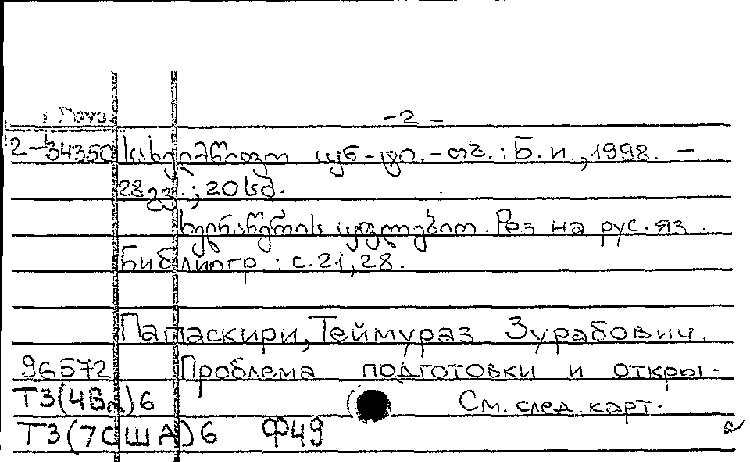 Груз. -2-
2-34350 სახელმწიფო უნ-ტი. - თბ. : Б.и., 1998. -
28 გვ. ; 20 სმ.
ხელნაწერის უფლებით. Рез на рус. яз.
Библиогр : с.21,28.
Папаскири, Теймураз Зурабович.
96572 Проблема подготовки и откры-
Т3(4Вл)6 См. след. карт.
Т3(7США)6 Ф49